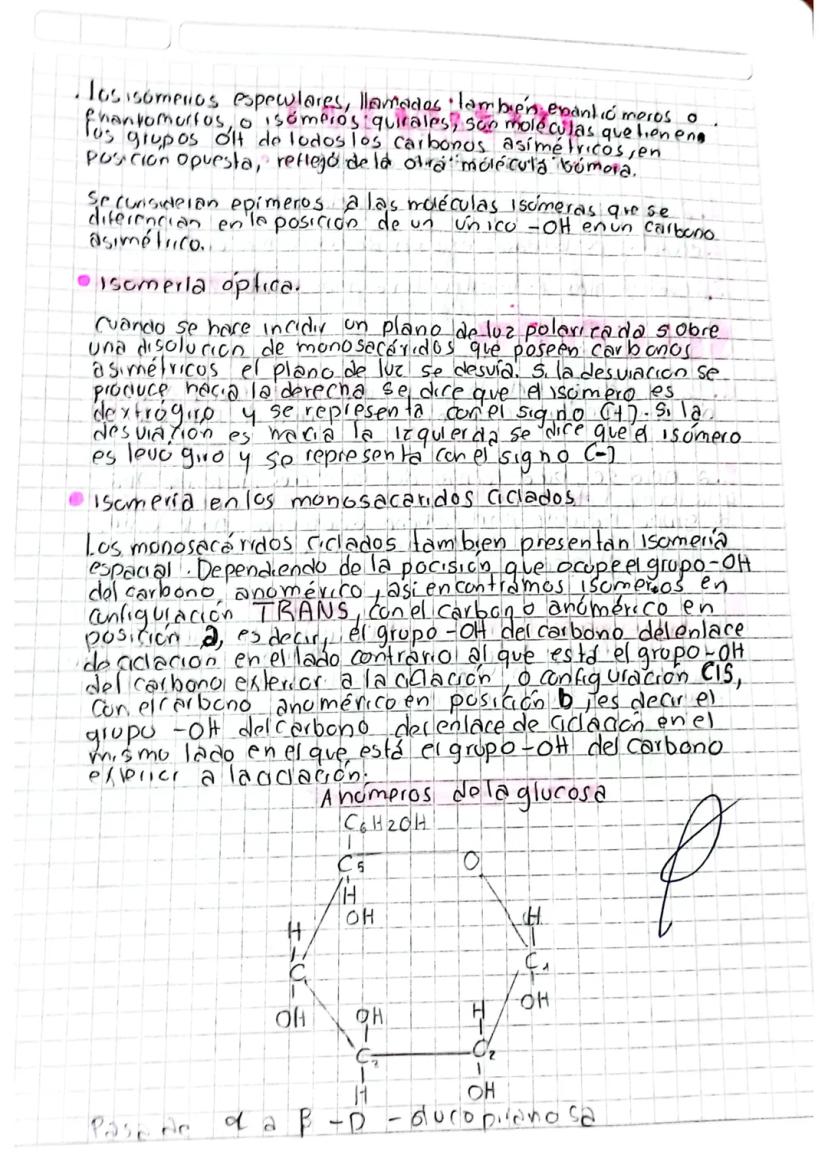 . los isómeros especulares, llamados también enantiómeros o
enantomorfos, o isómeros quirales, son moléculas que tienen
los grupos OH de todos los carbonos asimétricos, en
posición opuesta, reflejo de la otra molécula isómera.
se consideran epímeros a las moléculas isómeras que se
diferencian en la posición de un único -OH en un carbono
asimétrico.
• Isomería óptica.
Cuando se hace incidir un plano de luz polarizada sobre
una disolución de monosacáridos que poseen carbonos
asimétricos el plano de luz se desvía. Si la desviación se
produce hacia la derecha se dice que el isómero es
dextrógiro y se representa con el signo (+). Si la
desviación es hacia la izquierda se dice que el isómero
es levógiro y se representa con el signo (-)
• Isomería en los monosacáridos ciclados
Los monosacáridos ciclados tambien presentan isomería
espacial. Dependiendo de la pocisión que ocupe el grupo -OH
del carbono anomérico, asi encontramos isomeros en
configuración TRANS, con el carbono anómérico en
posición a, es decir, el grupo -OH del carbono del enlace
de ciclación en el lado contrario al que está el grupo -OH
del carbono exterior a la ciclación, o configuración CIS,
con el carbono anomérico en posición b, es decir el
grupo -OH del carbono del enlace de ciclación en el
mismo lado en el que está el grupo -OH del carbono
exterior a la ciclación.
Anómeros de la glucosa
C6H2OH
C5 O
H
OH
H H
C C1
OH OH
OH H
C3 C2
H OH
α a β -D - glucopiranosa